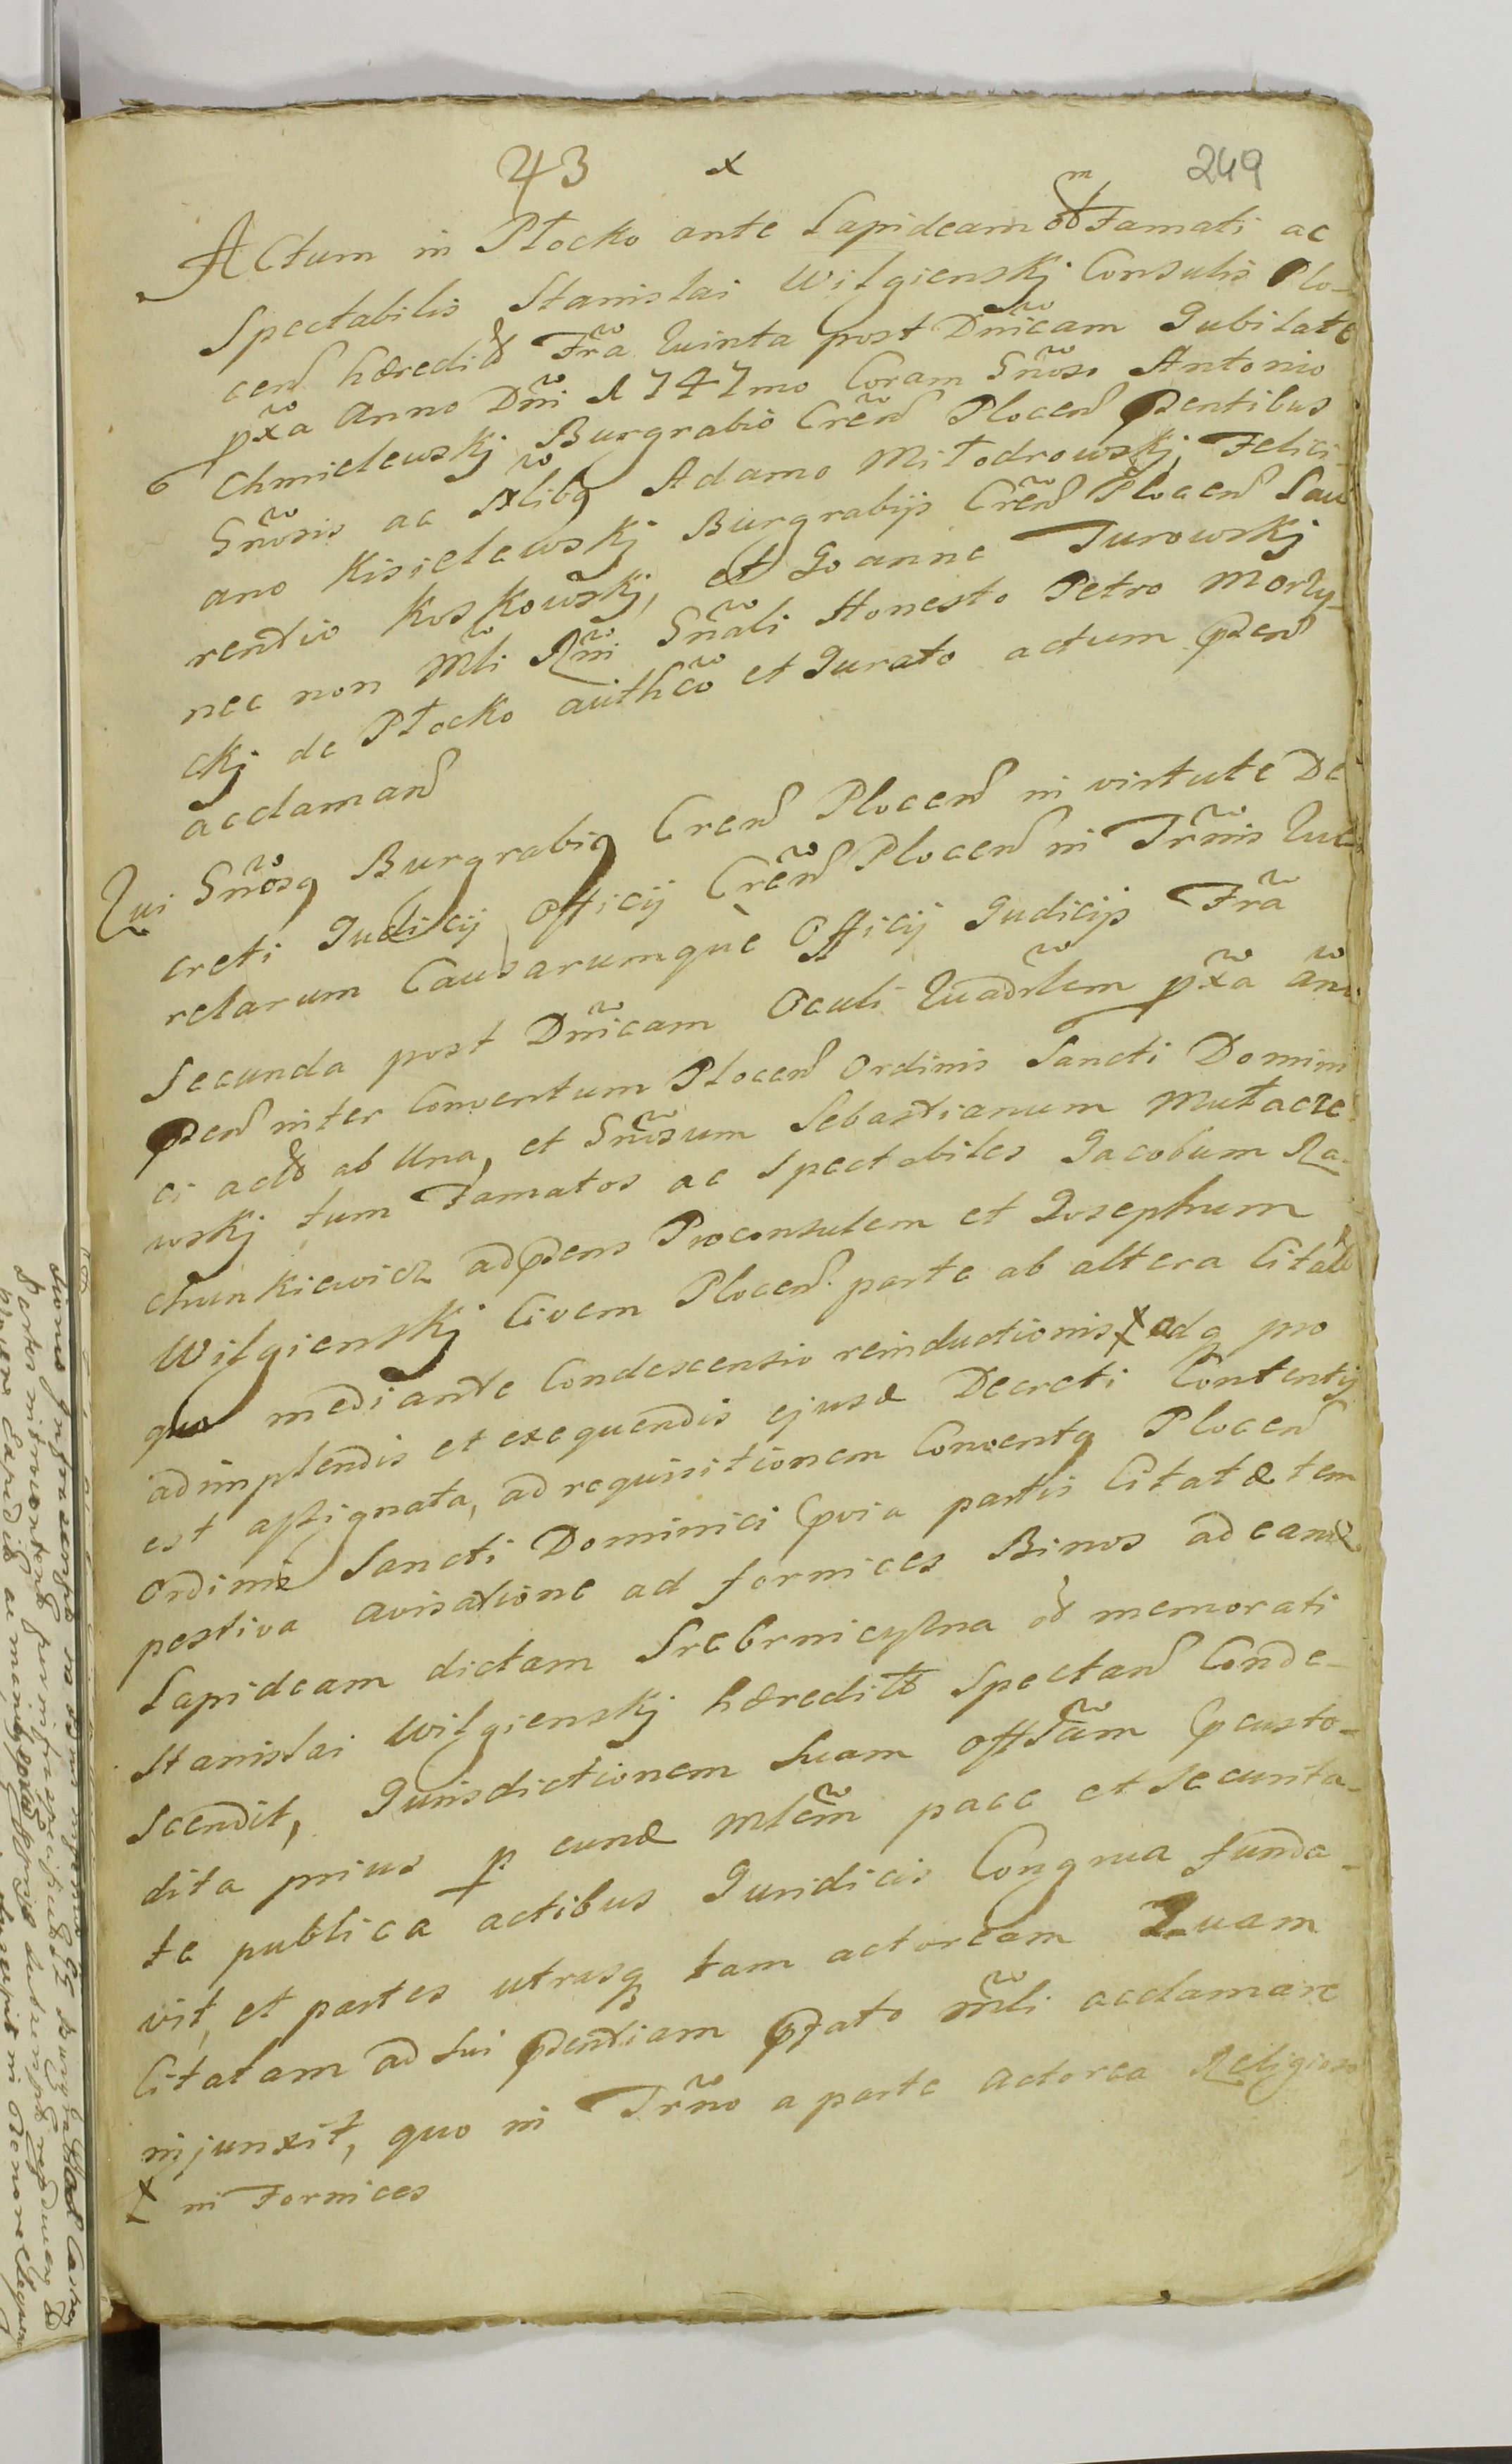 43 x 249
Actum in Płocko ante Lapideam od Famati ac
Spectabilis Stanislai Wilgienskj Consulis Plo-
cen̄ hæredit̄ Fr̃a Quinta post Dñicam Jubilate
px̃a Anno Dñi 1747mo Coram Gñoso Antonio
Chmielewskj Burgrabio Cr̃en̄ Plocen̄ p̄sentibus
Gñosis ac Nlibq Adamo Miłodrowskj, Felici-
ano Kisielewskj Burgrabijs Cr̃en̄ Plocen̄ Lau
rentio Koskowskj, et Joanne Turowskj
nec non Mli Rñi Gñali Honesto Petro Morzy-
ckj de Płocko aũthco et Jurato actum p̄sen̄
acclaman̄
Qui Gñosq Burgrabiq Cren̄ Plocen̄ in virtute De
creti Judicij Officij Cr̃en̄ Plocen̄ in Tr̃mis Que
relarum Causarumquè Officij Judicijs Fr̃a
Secunda post Dñicam Oculi Quad̃rlem px̃a añi
p̄sen̄ inter Conventum Plocen̄ Ordinis Sancti Domini
ci act̄ ab Una, et Gñosum Sebastianum Mutacze
wskj tum Famatos ac Spectabiles Jacobum Ra-
chunkiewicz ad p̄sens Proconsulem et Josephum
Wilgienskj Civem Plocen̄ parte ab altera Citat̄
quo mediante Condescensio reinductionis x adq pro
adimplendis et exequendis ejusd Decreti Contentis
est assignata, ad requisitionem Conventq Plocen̄
Ordinis Sancti Dominici pvia partis Citatæ tem
pestiva avisatione ad fornices Binos ad eand
Lapideam dictam Srebrniczyzna od memorati
Stanislai Wilgienskj hæredit̄ Spectan̄ Conde-
scendit, Jurisdictionem suam offl̃am p custo-
dita prius p eund mlem̃ pace et securita-
te publica actibus Juridicis Congrua funda-
vit, et partes utrasq tam actoream Quam
Citatam ad sui p̄sentiam p̄fato mli acclamare
injunxit, quo in Tr̃no a parte actorea Religioso
x in Fornices